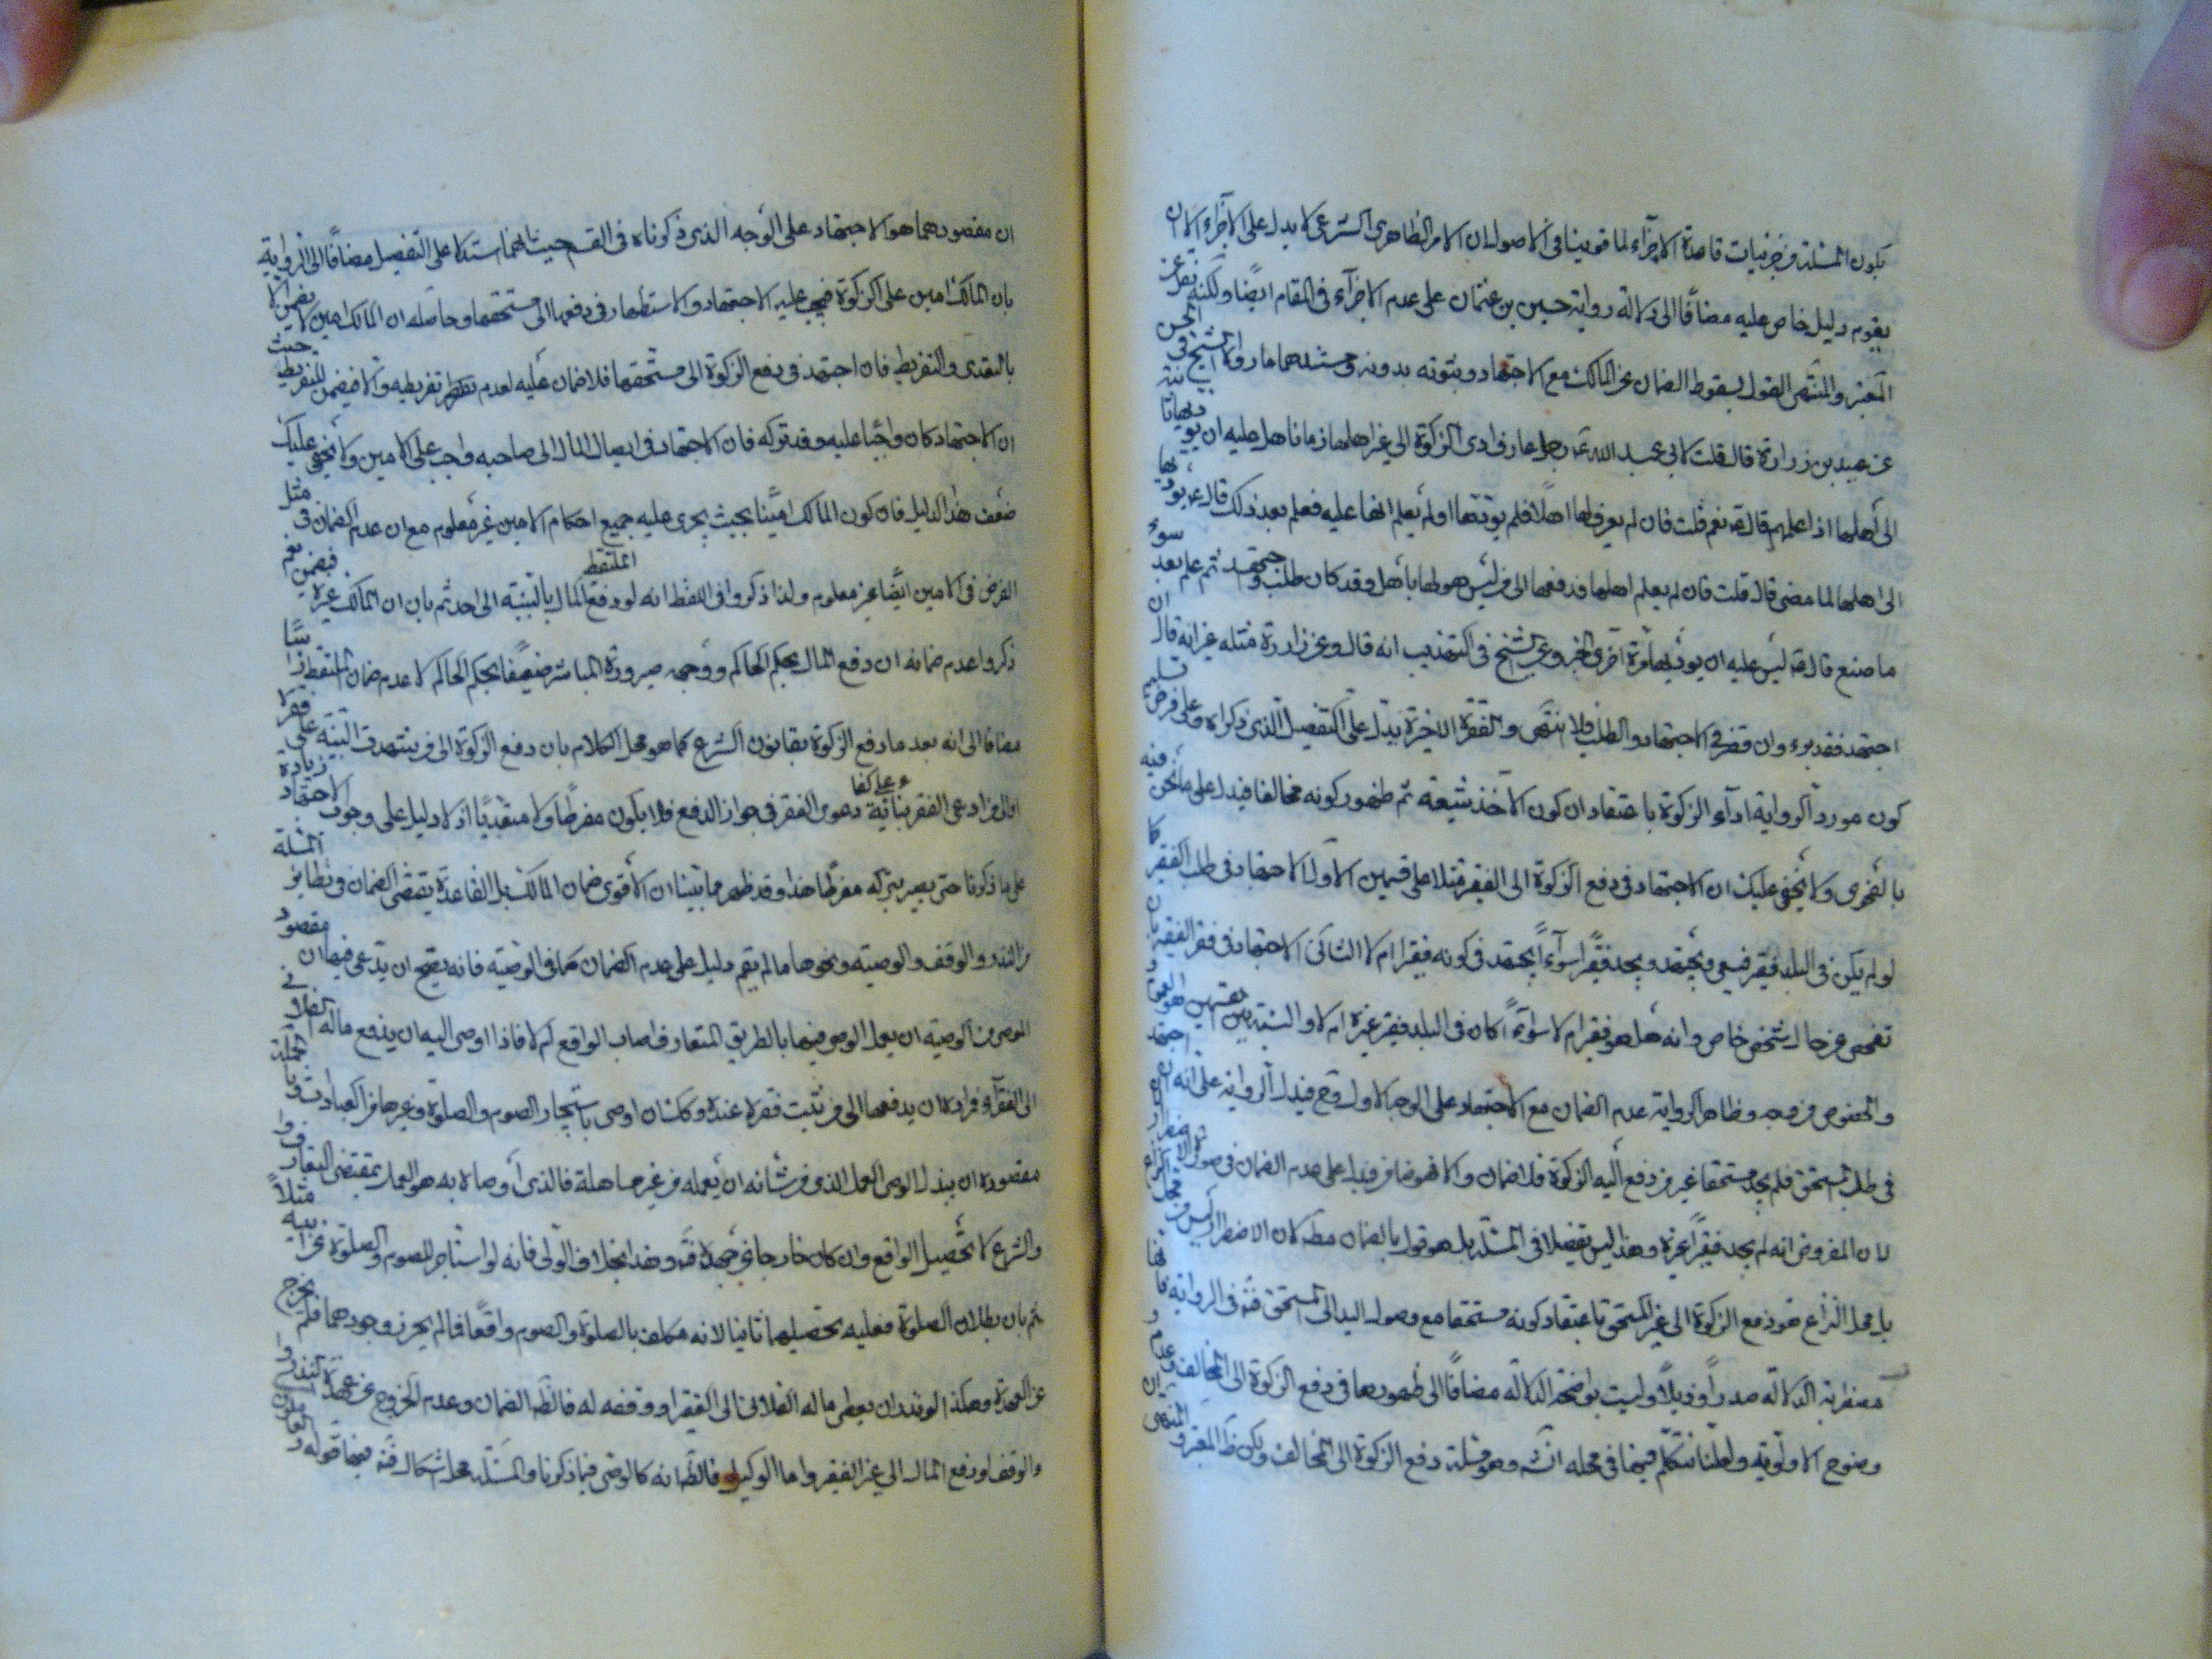 يكون المسئلة من جزئيات قاعدة الاجزاء لما قوينا فى الاصول ان الامر الظاهرى الشرعى لا يدل على الاجزاء الا ان
يقوم دليل خاص عليه مضافًا الى دلالة رواية حسين بن عثمان على عدم الاجزآء فى المقام ايضًا ولكنه نقل عن
المعتبر والمنتهى القول بسقوط الضمان عن المالك مع الاجتهاد وبثبوته بدونه ومستندهما ما رواه الشيخ فى
عن عبيد بن زرارة قال قلت لابى عبد الله ع رجل عارف ادى الزكوة الى غير اهلها زمانا هل عليه ان يؤديها ثانية
الى اهلها اذا علمهم قال نعم قلت فان لم يعرف لها اهلًا فلم يؤدها او لم يعلم انها عليه فعلم بعد ذلك قال يؤديها
الى اهلها لما مضى قال قلت فان لم يعلم اهلها فدفعها الى من ليس هو لها باهل وقد كان طلب واجتهد ثم علم بعد سوء
ما صنع قال ليس عليه ان يؤديها مرة اخرى وعن الشيخ فى التهذيب انه قال وعن زرارة مثله غير انه قال ان
اجتهد فقد برء وان قصر فى الاجتهاد والطلب فلا انتهى والفقرة الاخيرة يدل على التفصيل الذى ذكراه وعلى فرض تسليم
كون مورد الرواية اداء الزكوة باعتقاد ان كون الآخذ شيعة ثم ظهور كونه مخالفا فيدل على ما نحن فيه
بالفحوى ولا يخفى عليك ان الاجتهاد فى دفع الزكوة الى الفقير مثلا على قسمين الاول الاجتهاد فى طلب الفقير كما
لو لم يكن فى البلد فقير فيسعى ويجتهد ويجد فقيرا سوآء يجتهد فى كونه فقيرا ام لا الثانى الاجتهاد فى فقر الفقير بان
تفحص عن حال شخص خاص وانه هل هو فقير ام لا سوآء كان فى البلد فقير غيره ام لا والنسبة بين الجهتين العموم
والخصوص من وجه وظاهر الرواية عدم الضمان مع الاجتهاد على الوجه الاول فيدل الرواية على انه ان اجتهد
فى طلب المستحق فلم يجد مستحقا غير من دفع اليه الزكوة فلا ضمان والا فهو ضامن فيدل على عدم الضمان فى صورة
لان المفروض انه لم يجد فقيرا غيره وهذا ليس تفصيلا فى المسئلة بل هو قول بالضمان مطه لان الاضطرار ليس من محل
بل محل النزاع هو دفع الزكوة الى غير المستحق باعتقاد كونه مستحقا مع وصول اليد الى المستحق فى الرواية
مضطربة الدلالة صدرا وذيلًا وليست بواضحة الدلالة مضافًا الى ظهورها فى دفع الزكوة الى المخالف وعدم
وضوح الاولوية ولعلنا نتكلم فيها فى محله انش وهو مسئلة دفع الزكوة الى المخالف ولكن ظ المعتبر والمنتهى
ان مقصودهما هو الاجتهاد على الوجه الذى ذكرناه فى القسم حيث انهما استدلا على التفصيل مضافًا الى الرواية
بان المالك امين على الزكوة فيجب عليه الاجتهاد والاستظهار فى دفعها الى مستحقها وحاصله ان المالك امين لا يضمن الا
بالتعدى والتفريط فان اجتهد فى دفع الزكوة الى مستحقها فلا ضمان عليه لعدم تفريطه والا فيضمن للتفريط حيث
ان الاجتهاد كان واجبا عليه وقد تركه فان الاجتهاد فى ايصال المال الى صاحبه واجب على الامين ولا يخفى عليك
ضعف هذا الدليل فان كون المالك امينا بحيث يجرى عليه جميع احكام الامين غير معلوم مع ان عدم الضمان فى مثل
الفرض فى الامين ايضا غير معلوم ولذا ذكروا فى اللقط انه لو دفع الملتقط المال بالبينة الى احد ثم بان ان المالك غيره فيضمن نعم
ذكروا عدم ضمانه ان دفع المال بحكم الحاكم ووجهه صيرورة المباشر ضعيفا بحكم الحاكم لا عدم ضمان الملتقط
مضافا الى انه بعد ما دفع الزكوة بقانون الشرع كما هو محل الكلام بان دفع الزكوة الى من شهدت البينة على فقره
او الى من ادعى الفقر بناء على كفاية دعوى الفقر فى جواز الدفع فلا يكون مفرطا ولا متعديا اذ لا دليل على وجوب الاجتهاد زيادة
على ما ذكرنا حتى يصير بتركه مفرطا هذا وقد ظهر مما بينا ان الاقوى ضمان المالك بل القاعدة يقتضى الضمان فى نظاير المسئلة
من النذر والوقف والوصية ونحوها ما لم يقم دليل على عدم الضمان فى الوصية فانه يصح ان يدعى فيها ان مقصود
الموصى من الوصية ان يعمل الوصى فيها بالطريق المتعارف اصاب الواقع ام لا فاذا اوصى اليه ان يدفع ماله الفلانى
الى الفقراء فمراده ان يدفعها الى من ثبت فقره عنده وكك ان اوصى باستيجار الصوم والصلوة وغيرها من العبادات وبالجملة
مقصوده ان يبذل الوصى العمل الذى من شانه ان يعمله من غير مساهلة فالذى اوصاه به هو العمل بمقتضى التعارف
والشرع لا تحصيل الواقع وان كان خارجا عن عهدة وهذا بخلاف الولى فانه لو استاجر للصوم والصلوة عن ابيه مثلًا
ثم بان بطلان الصلوة فعليه تحصيلهما ثانيا لانه مكلف بالصلوة والصوم واقعًا فما لم يحرز وجودهما فلم يخرج
عن العهدة وهكذا لو نذر ان يعطى ماله الفلانى الى الفقير او وقفه له فالظ الضمان وعدم الخروج عن عهدة النذر
والوقف لو دفع المال الى غير الفقير واما الوكيل فالظ انه كالوصى فيما ذكرنا والمسئلة محل اشكال قوله